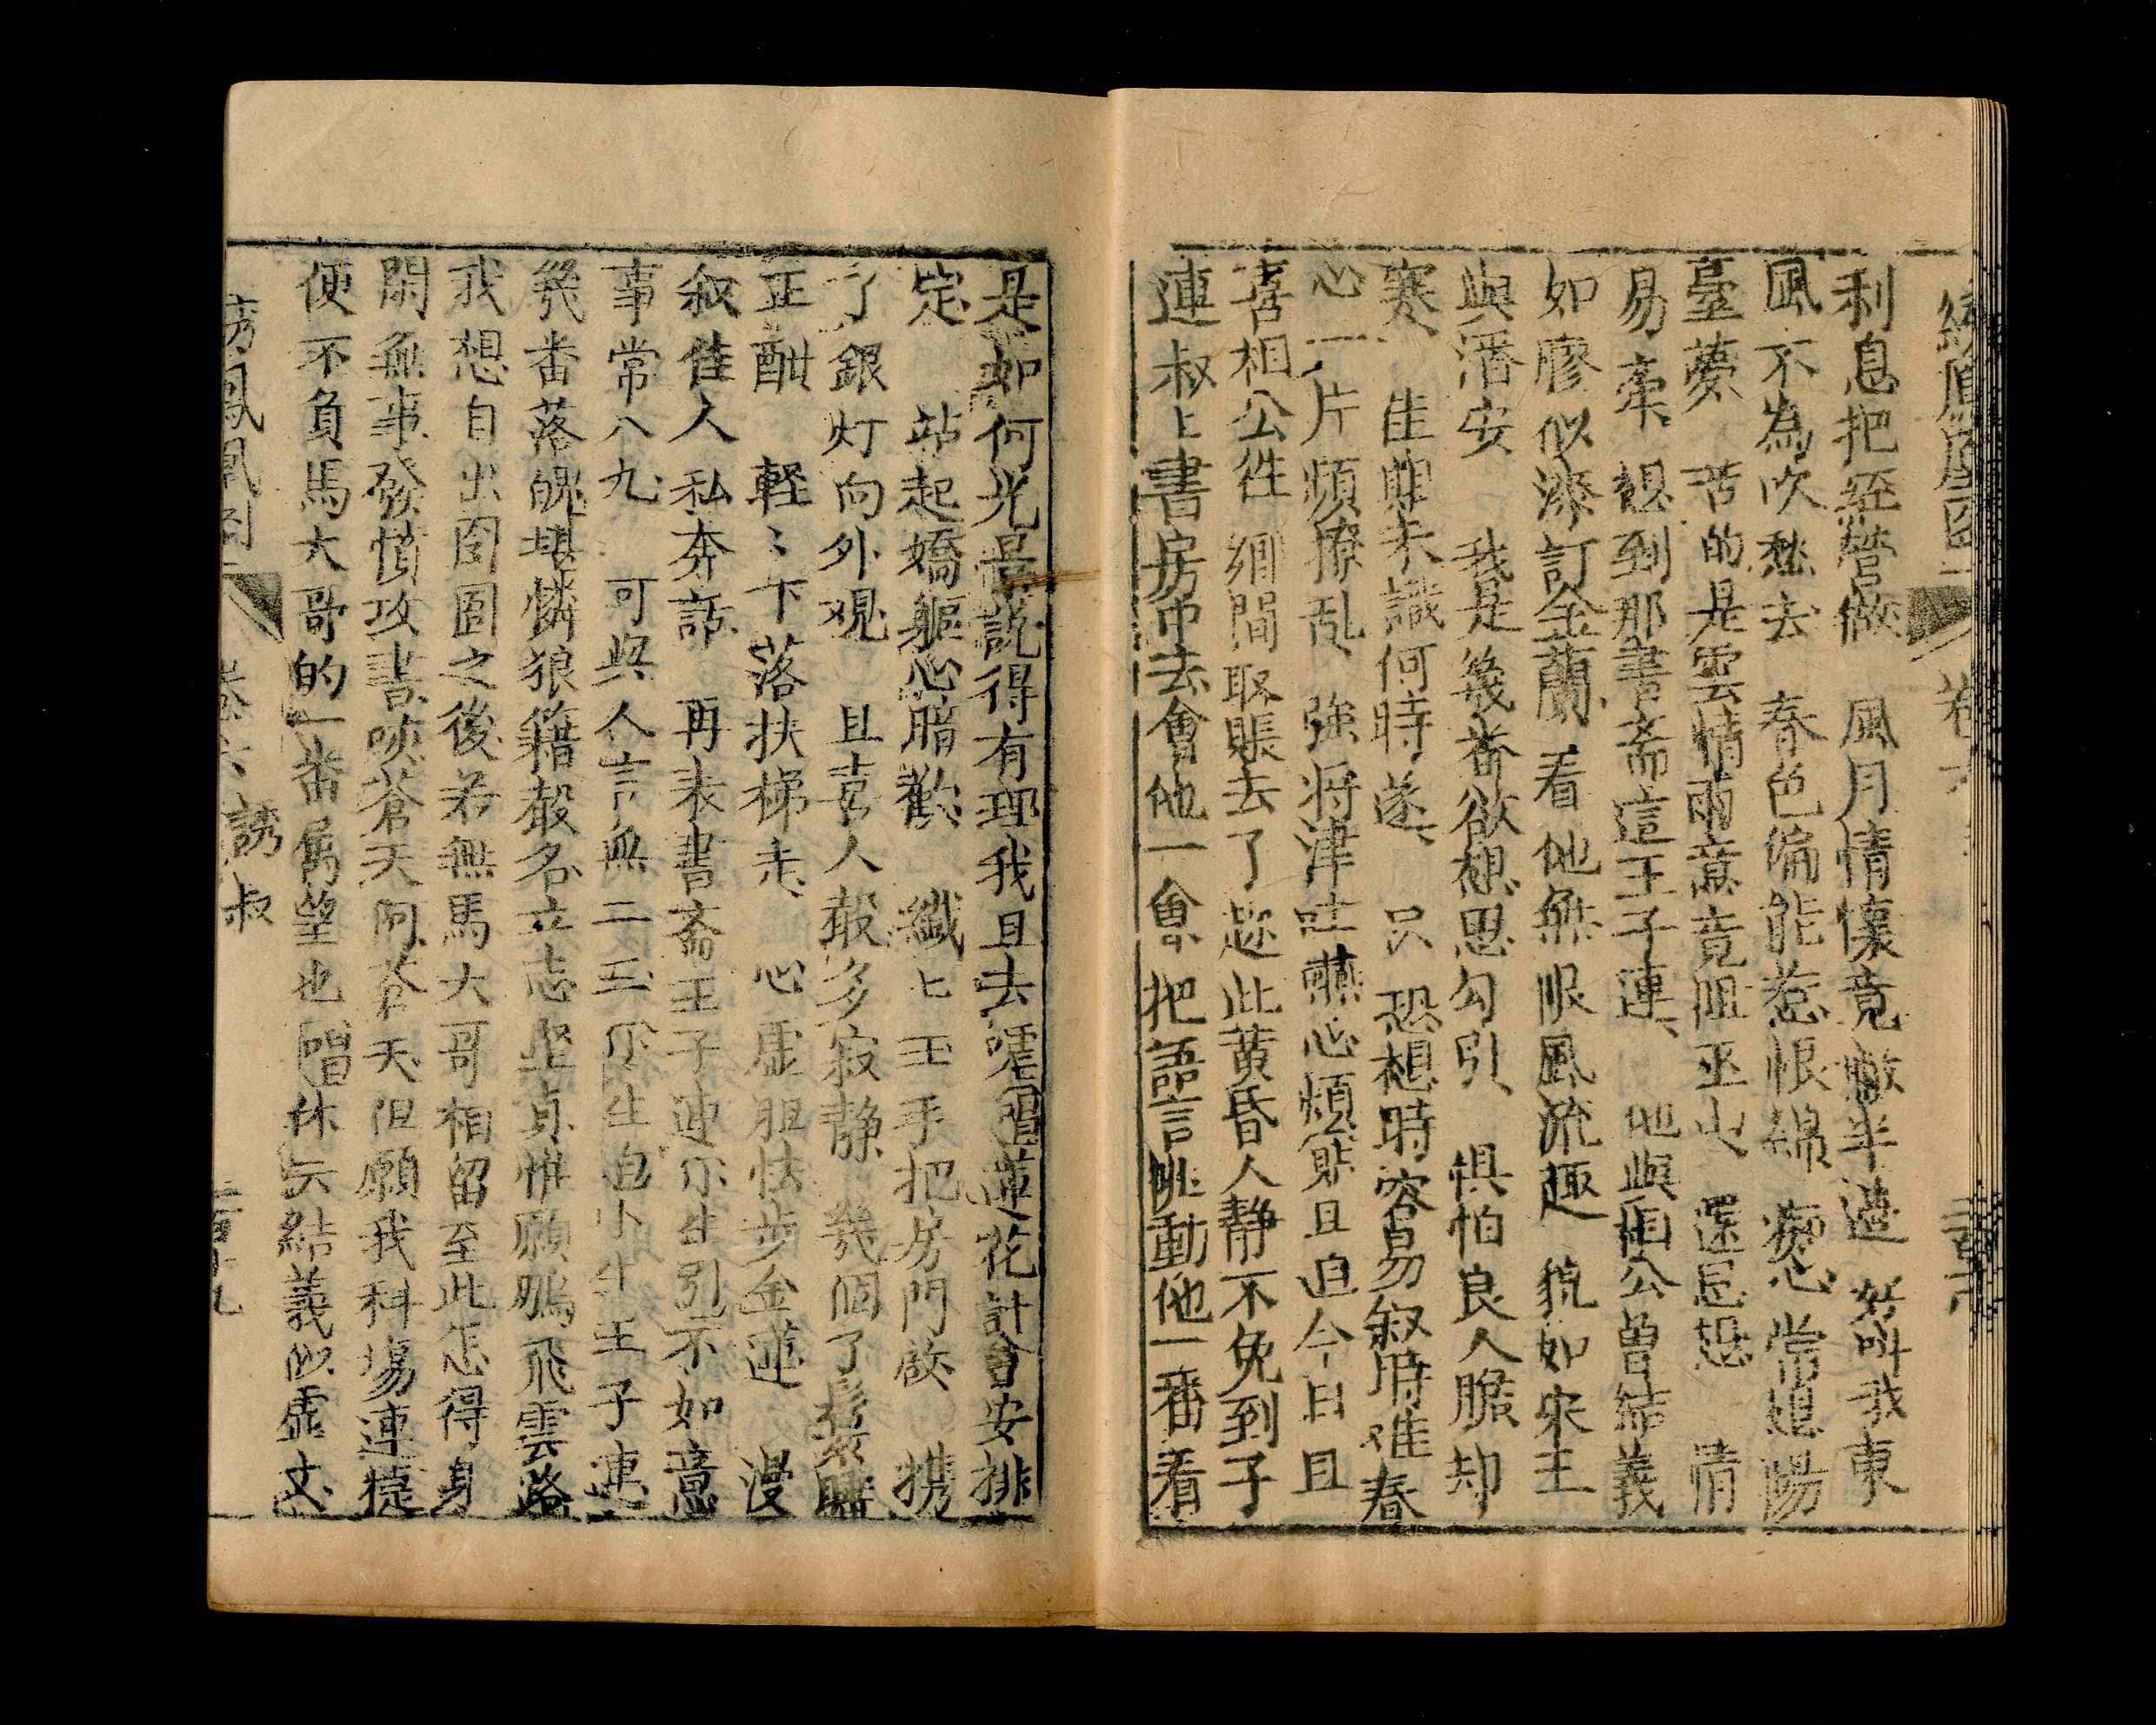 利息把经营做　風月情懷竟撇半邊　好叫我東
風不為吹愁去　春色偏能惹恨綿　痴心常想陽
臺夢　苦的是雲情雨意竟阻巫山　還忌恐　情
易牽　想到那書斋這王子連　他與相公曾结義
如膠似漆訂金蘭　看他無限風流趣　貌如宋玉
與潘安　我是幾番欲想思勾引　惧怕良人膽却
寒　佳期未識何時遂　只恐想時容易叙時难　春
心一片頻撩乱　強将津吐嚥心煩　且迫今日且
喜相公徃　间取賬去了　趁此黄昏人静不免到子
連叔匕書房中去會他一會　把語言眺動他一番看
是如何光景說得有理我且去嗟　蓮花計會安排
定　站起嬌軀心暗歡　纖匕玉手把房門啟　携
了銀灯向外观　且喜人報多寂静　幾個了鬟睡
正酣　軽〻下落扶梯来　心虚胆怯步金蓮　漫
叙佳人私奔話　再表書斋王子連　引不如意
事常八九　可與人言無二三　小生王子連
幾番落魄堪憐狼籍聲名立志坚貞惟願鵬飛雲路
我想自出囹圄之後若無馬大哥相留至此怎得身
閑無事發憤攻書唉蒼天阿蒼天但願我科塲連捷
便不負馬大哥的一番属望也　唱　休云結義似虚文
鳳凰圖　卷六　誘叔